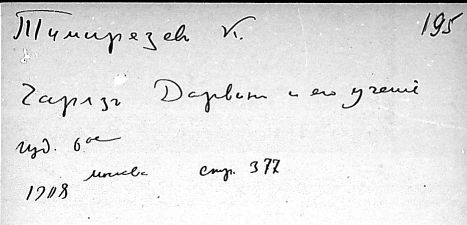 Тимирязев К. 195
Чарлзъ Дарвин и его учение
изд. 6ое
Москва стр. 377
1908